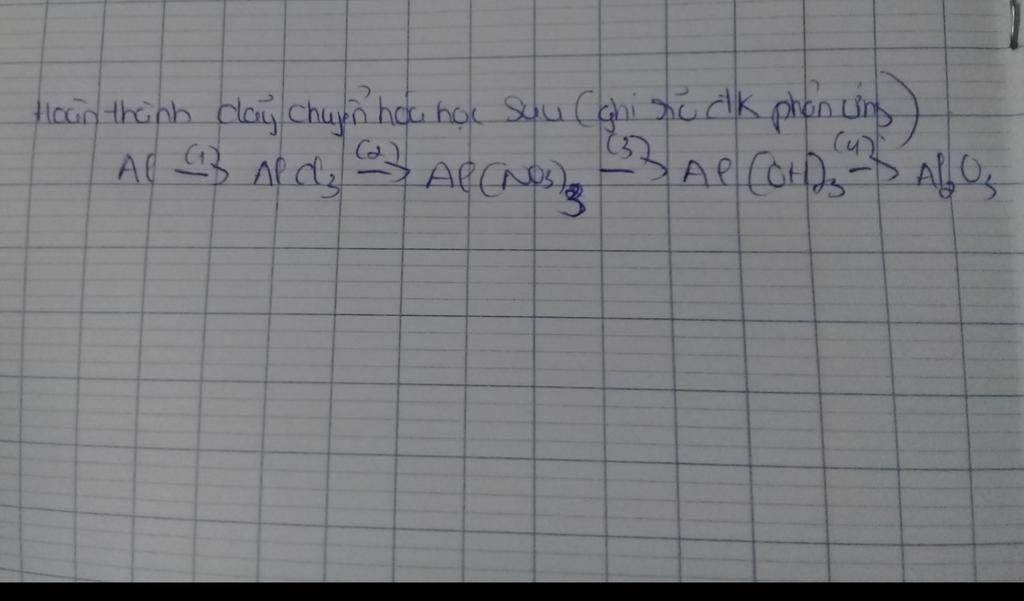 Hoàn thành dãy chuyển hóa học sau (ghi rõ đk phản ứng)
Al (1)→ AlCl3 (2)→ Al(NO3)3 (3)→ Al(OH)3 (4)→ Al2O3